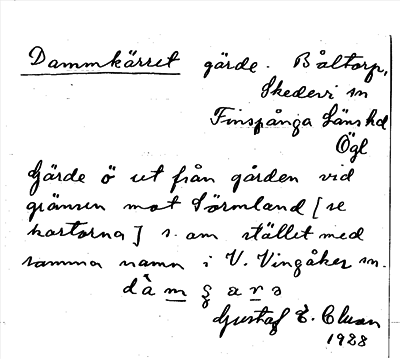 Dammkärret gärde. Båltorp,
Skedevi sn
Finspånga Länshd
Ögl
Gärde ö ut från gården vid
gränsen mot Sörmland [se
kartorna] s. om stället med
samma namn i V. Vingåker sn.
Gustaf E.
1928